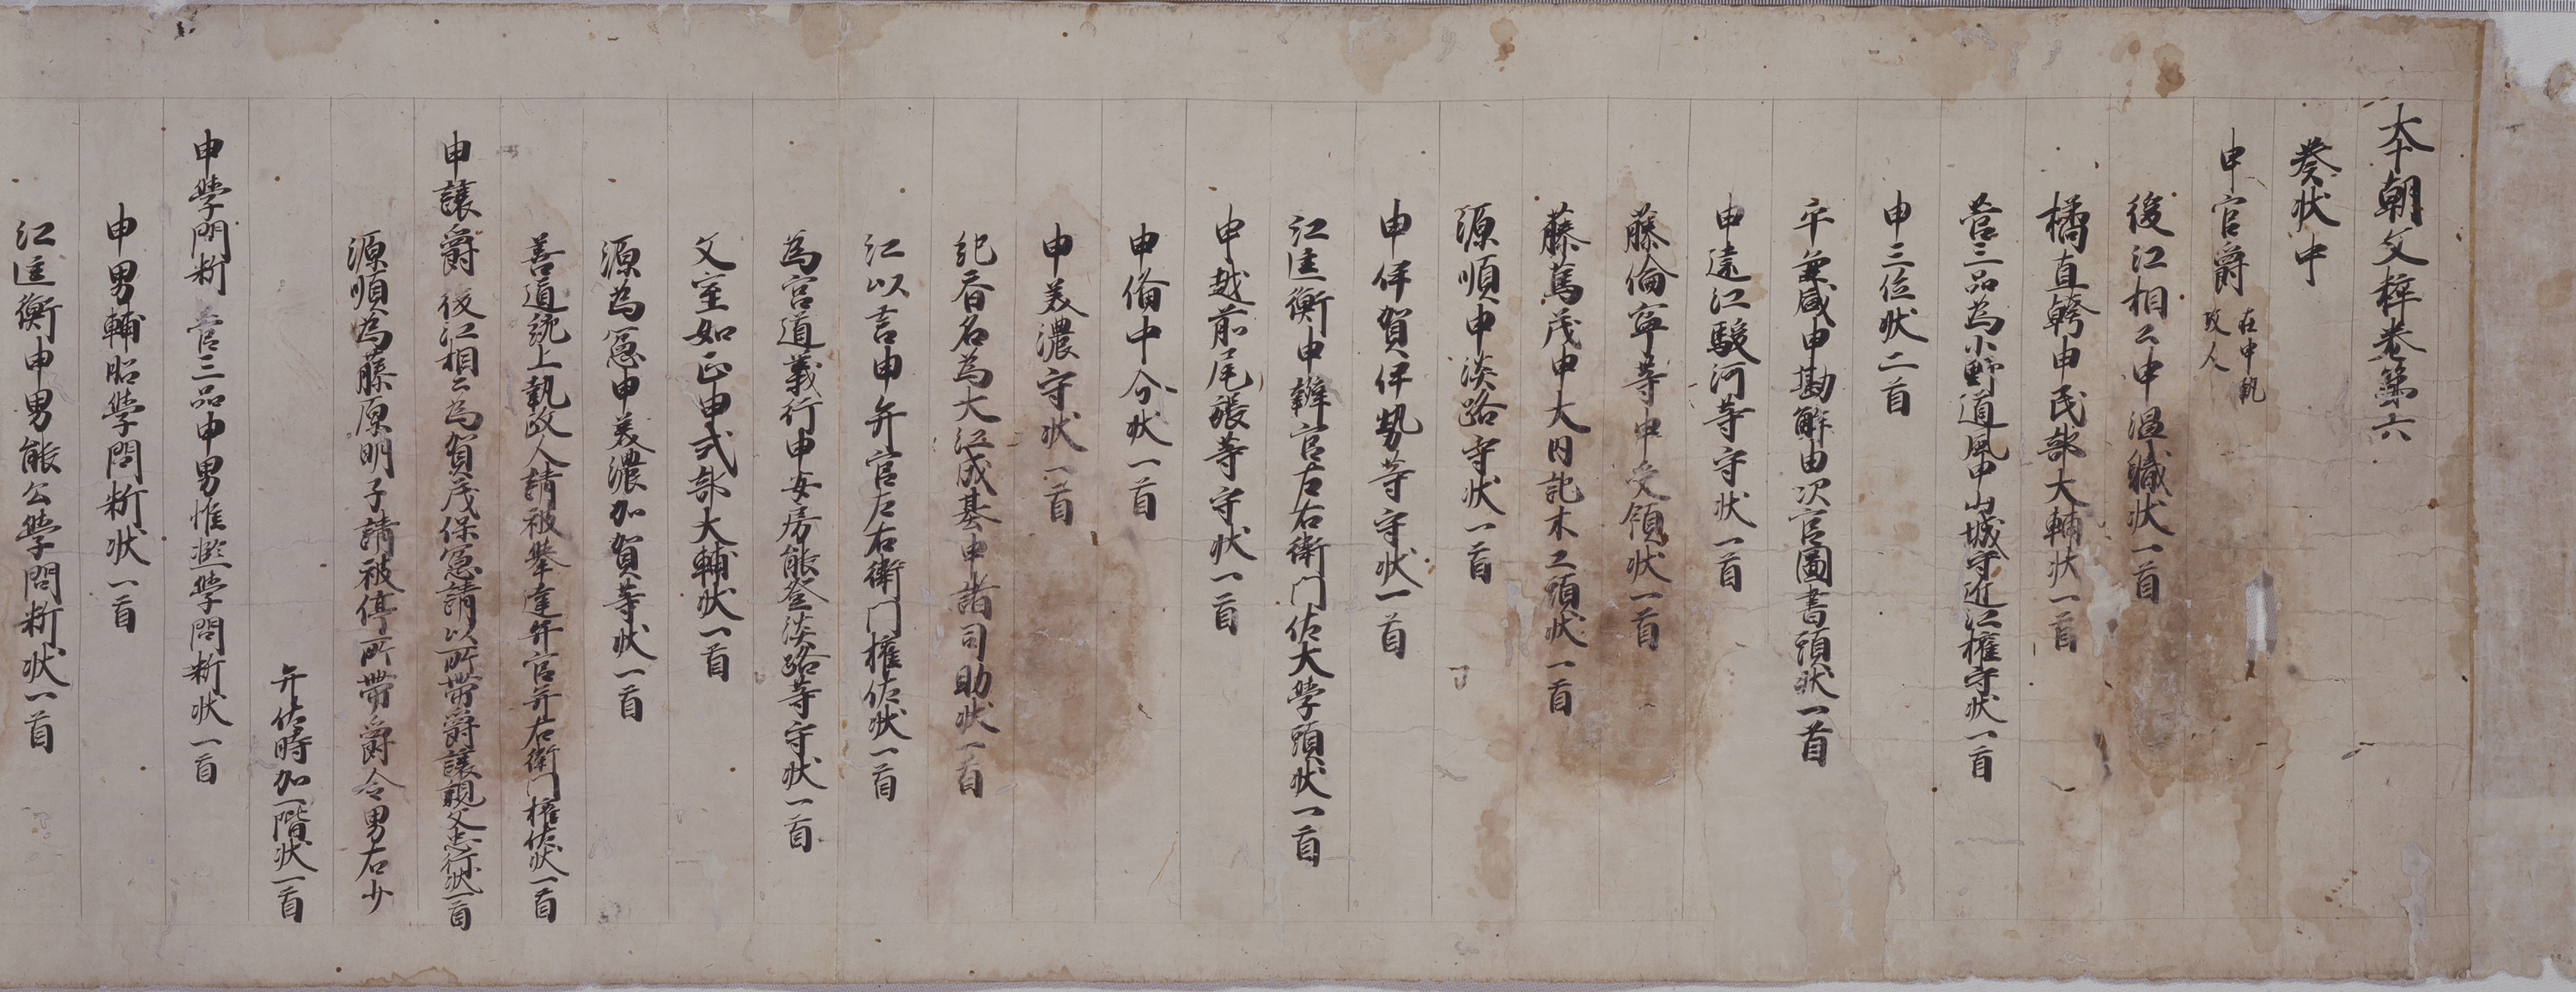 本朝文粹卷第六
奏状中
申官爵 在申執政人
後江相公申温職状一首
橘直幹申民部大輔状一首
菅三品為小野道風申山城守近江權守状一首
申三位状二首
平兼盛申勘解由次官圖書頭状一首
申遠江駿河等守状一首
藤倫寧等申受領状一首
藤篤茂申大内記木工頭状一首
源順申淡路守状一首
申伊賀伊勢等守状一首
江匡衡申辨官左右衛门佐大學頭状一首
申越前尾張等守状一首
申俻中介状一首
申美濃守状一首
紀齊名為大江成基申諸司助状一首
江以言申弁官左右衛门權佐状一首
為宮道義行申安房能登淡路等守状一首
文室如正申式部大輔状一首
源為憲申美濃加賀等状一首
善道統上執政人請被舉達弁官并右衛门權佐状一首
申讓爵 後江相公為賀茂保憲請以所帶爵讓親父忠行状一首
源順為藤原明子請被停所帶爵令男右少
弁佐時加一階状一首
申學問料 菅三品申男惟凞學問料状一首
申男輔昭學問料状一首
江匡衡申男能公學問料状一首